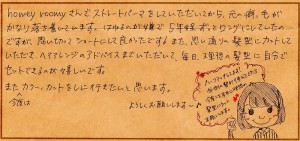 honey roomyさんでストレートパーマをしていただいてから、元の癖毛が
かなり落ち着いています。はねるのが嫌で5年程ずっとロングにしてしたの
ですが、思い切ってショートにして良かったです♪また、思い通りの髪型にカットして
いただき、ヘアアレンジのアドバイスまでいただいて、毎日、理想の髪型に自分で
セットできるのが嬉しいです。
また カラー、カットをしに行きたいと思います。
今後は よろしくお願いします〜♪